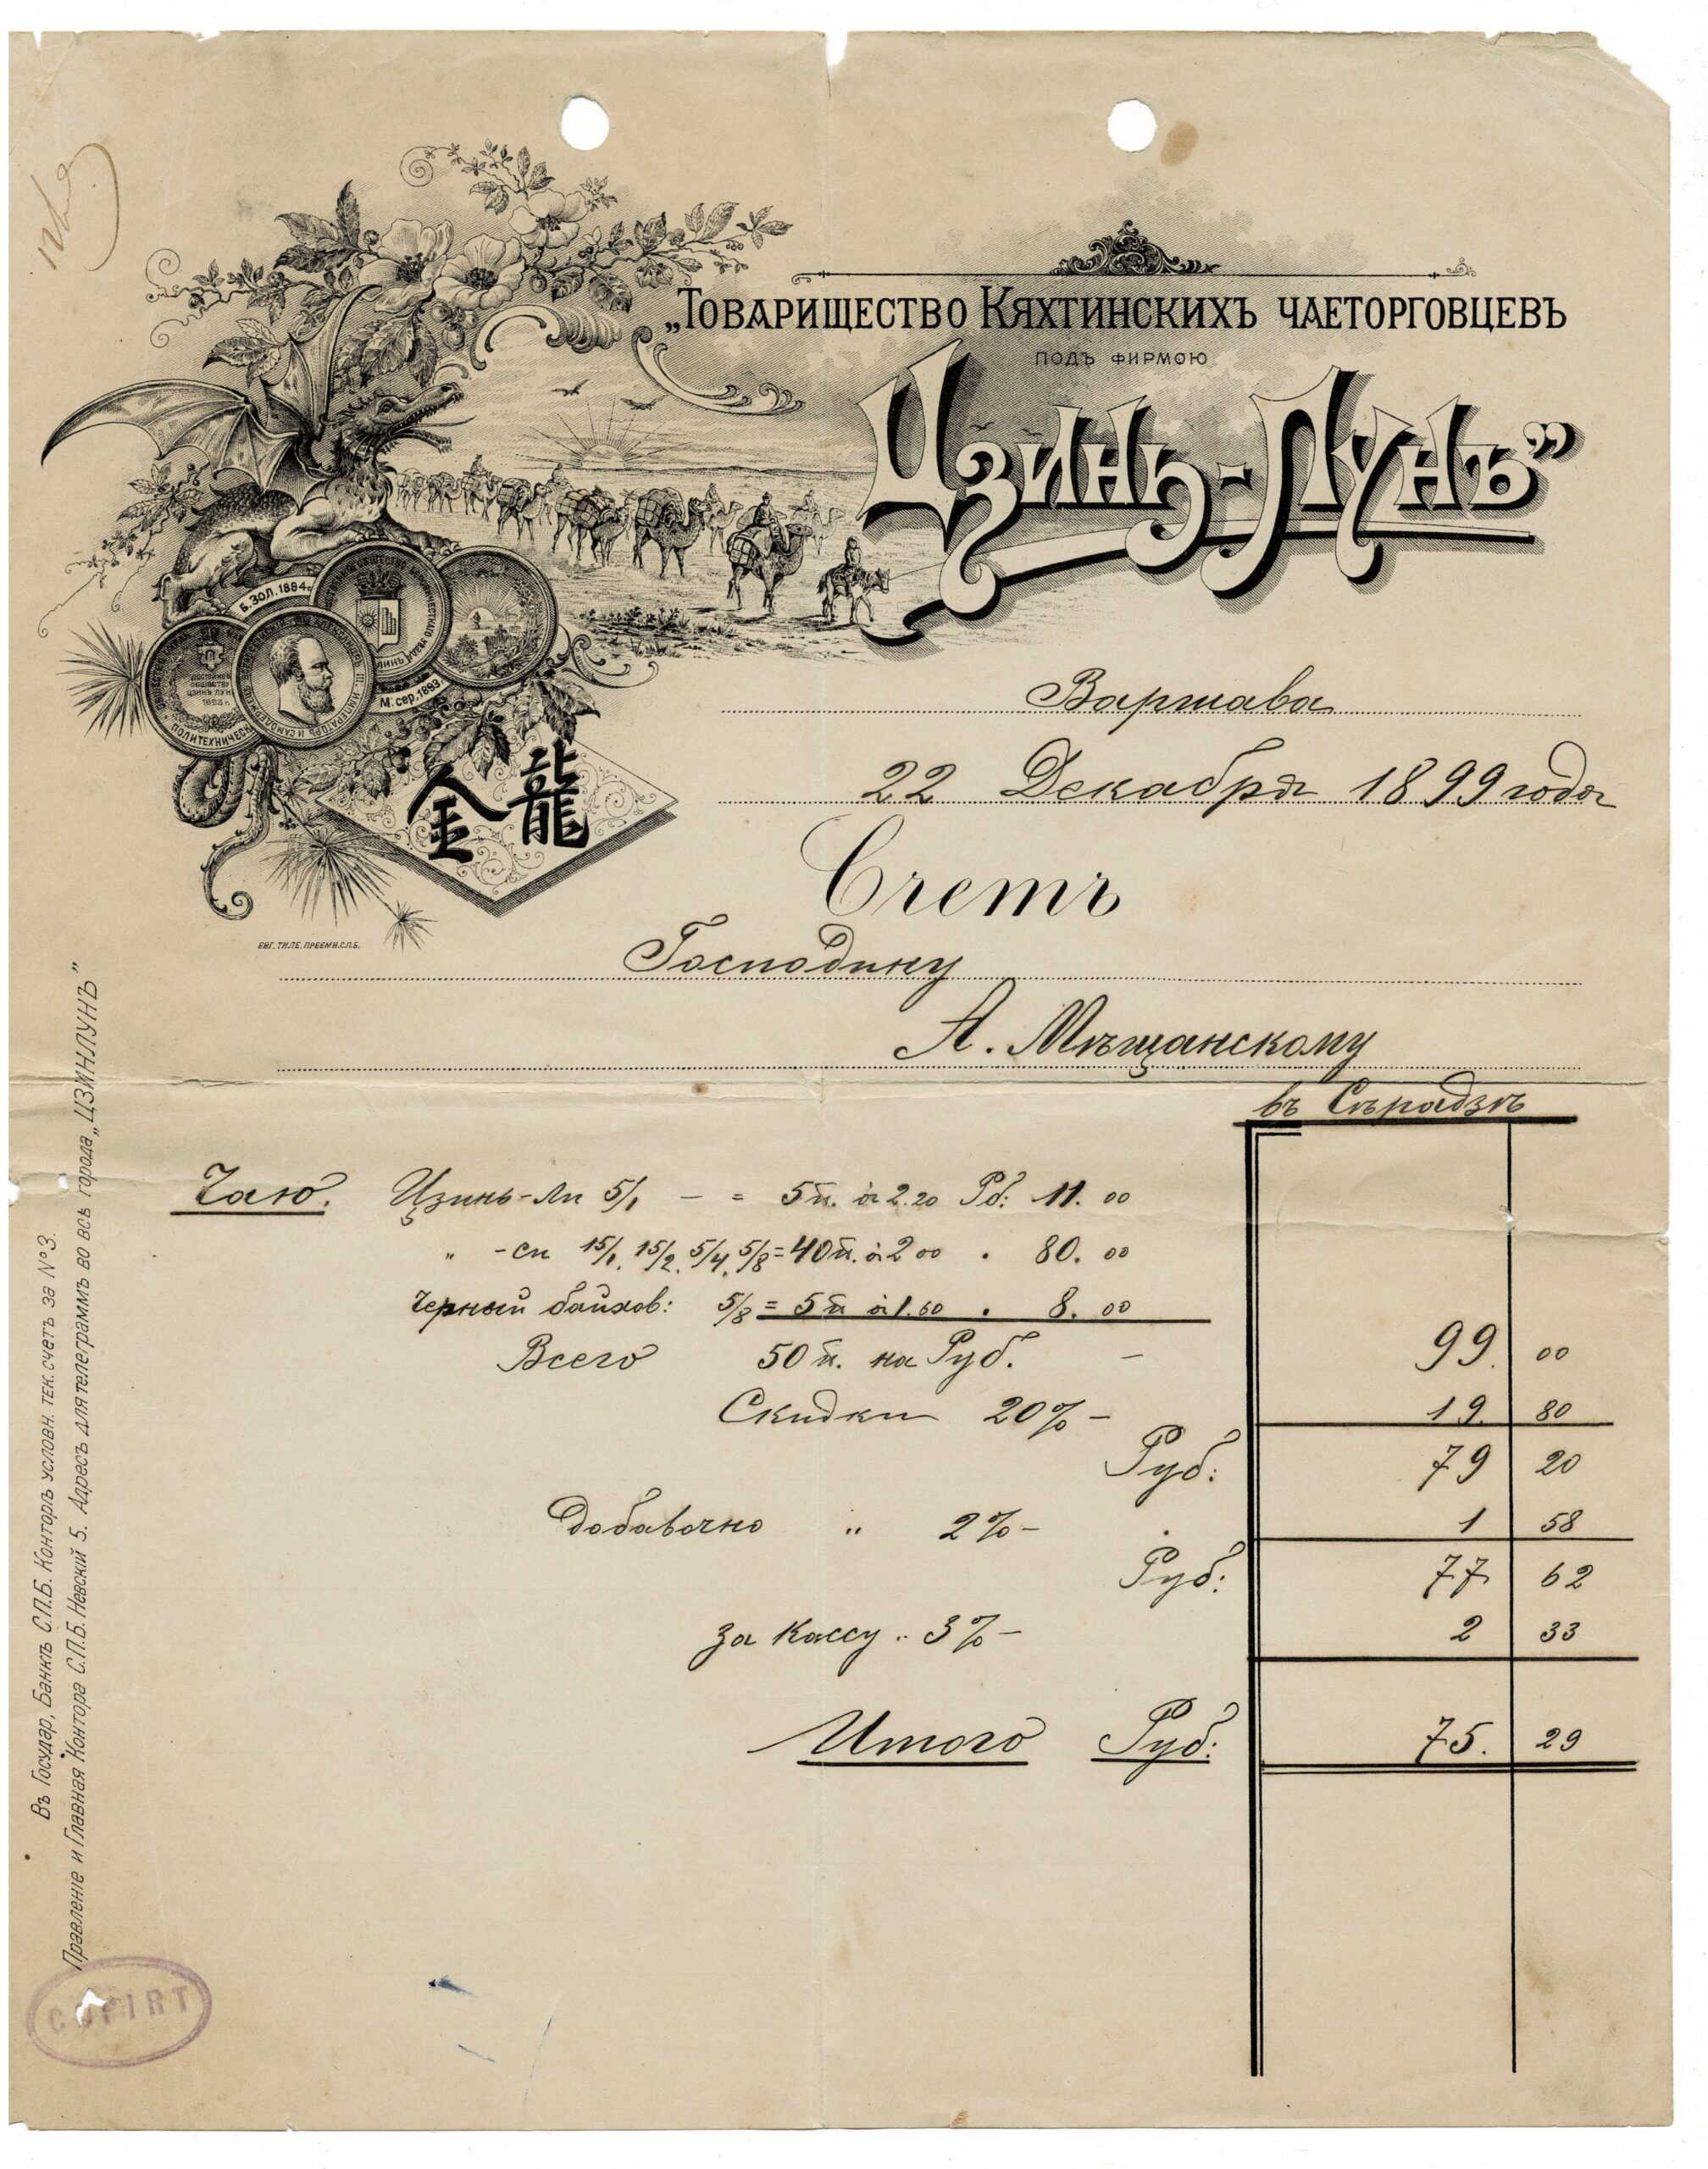 „Товарищество Кяхтинскихъ чаеторговцевъ
подъ фирмою
Цзинь-Лунъ”
Б. ЗОЛ. 1884 г.
М. сер. 1893.
ДОСТОЙНОМУ
ОБЩЕСТВУ
ЦЗИНЬ ЛУНЪ
1893 г.
金龍
ЕВГ. ТИЛЕ. ПРЕЕМН. С.П.Б.
Варшава
22 Декабря 1899 года
Счетъ
Господину
А. Мѣщанскому
въ Сѣрадзѣ
Чаю. Цзинь-Ли 5/1 – = 5 п. à 2.20 Рб: 11. 00
„ -си 15/1, 15/2, 5/4, 5/8 = 40 п. à 2 00 . 80. 00
Черный байхов: 5/8 = 5 п à 1.60 . 8. 00
Всего 50 п. на Руб. – 99. 00
Скидки 20% – 19. 80
Руб: 79 20
Добавочно „ 2% – 1 58
Руб: 77 62
за кассу „ 3% – 2 33
Итого Руб: 75. 29
Въ Государ. Банкѣ С.П.Б. Конторѣ условн. тек. счетъ за № 3.
Правленіе и Главная Контора С.П.Б. Невскій 5. Адресъ для телеграммъ во всѣ города „ЦЗИНЛУНЪ”
COPIRT